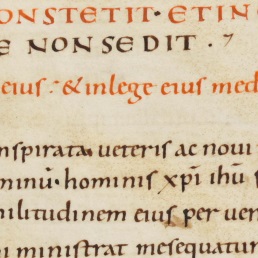 ONSTETIT· ETIN
E NON SEDIT.
eius: & inlege eius med
nspirata. ueteris ac noui
minū· hominis xp̄i ih̄u
militudinem eius per uer
ministrat mesequatur